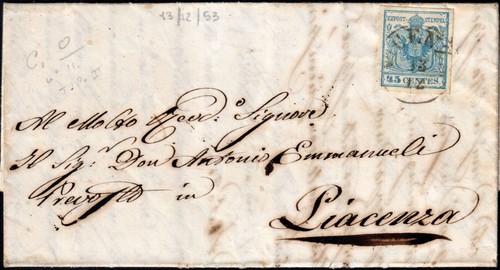 13/12/53
C. O
KPOST-STEMPEL
13
12
45 CENTES.
Al Molto Revd.º Signore
Il Sigr. Don Antonio Emmanueli
Prevosto in
Piacenza